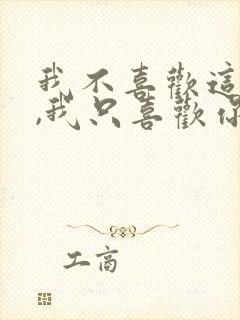 我不喜歡這
,我只喜歡你
工商